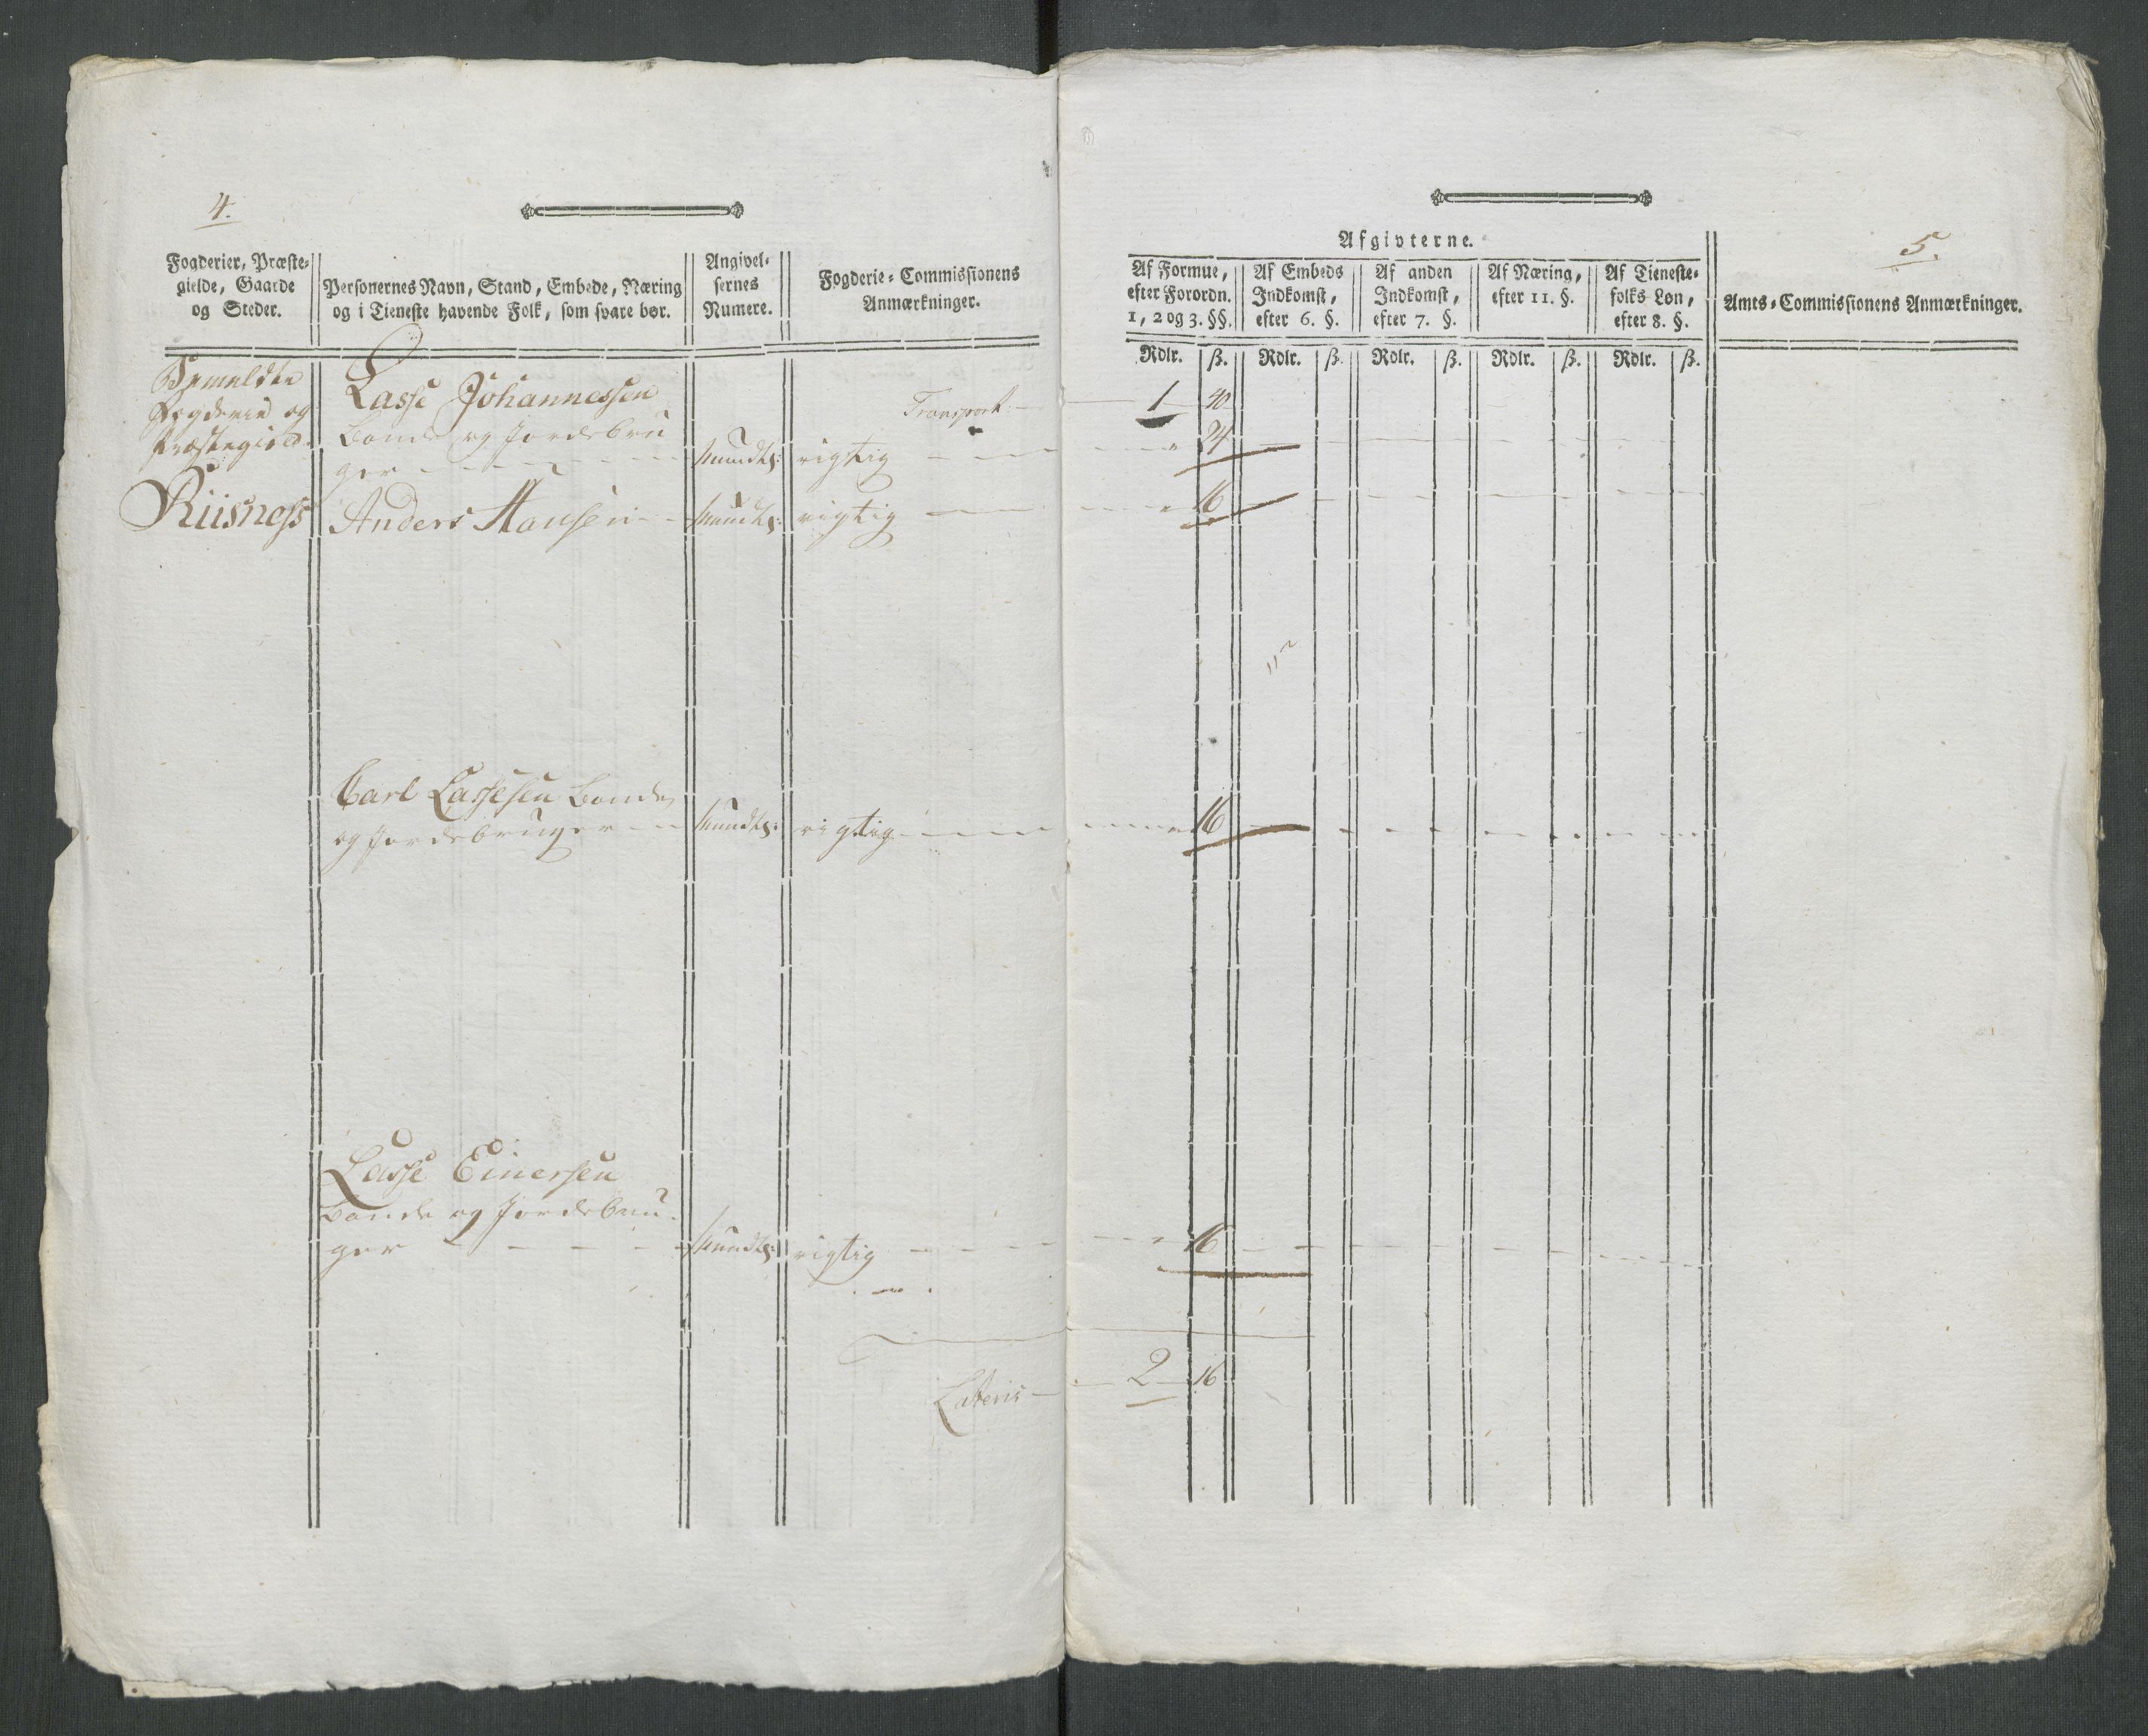 4.
Fogderier, Præste-
gielde, Gaarde
og Steder.
Personernes Navn, Stand, Embede, Næring
og i Tieneste havende Folk, som svare bør.
Angivel-
sernes
Numere.
Fogderie-Commissionens
Anmærkninger.
Bemeldte
Fogderie og
Præstegield.
Riisness
Transport
Lasse Johannessen
Bonde og Jordebru
ger mundtl: rigtig
Anders Hansen mundtl: rigtig
Carl Lassesen Bonde
og Jordebruger mundtl: rigtig
Lasse Einersen
Bonde og Jordebru-
ger mundtl: rigtig
Lateris
5.
Afgivterne.
Af Formue,
efter Forordn.
1, 2 og 3. §§.
Af Embeds
Indkomst,
efter 6. §.
Af anden
Indkomst,
efter 7. §.
Af Næring,
efter 11. §.
Af Tieneste-
folks Løn,
efter 8. §.
Amts-Commissionens Anmærkninger.
Rdlr. ß. Rdlr. ß. Rdlr. ß. Rdlr. ß. Rdlr. ß.
1 40
24
16
16
16
2 16